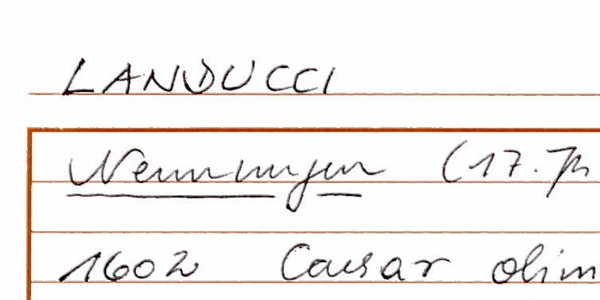 LANDUCCI
Nennungen (17. Jh
1602 Caesar olim